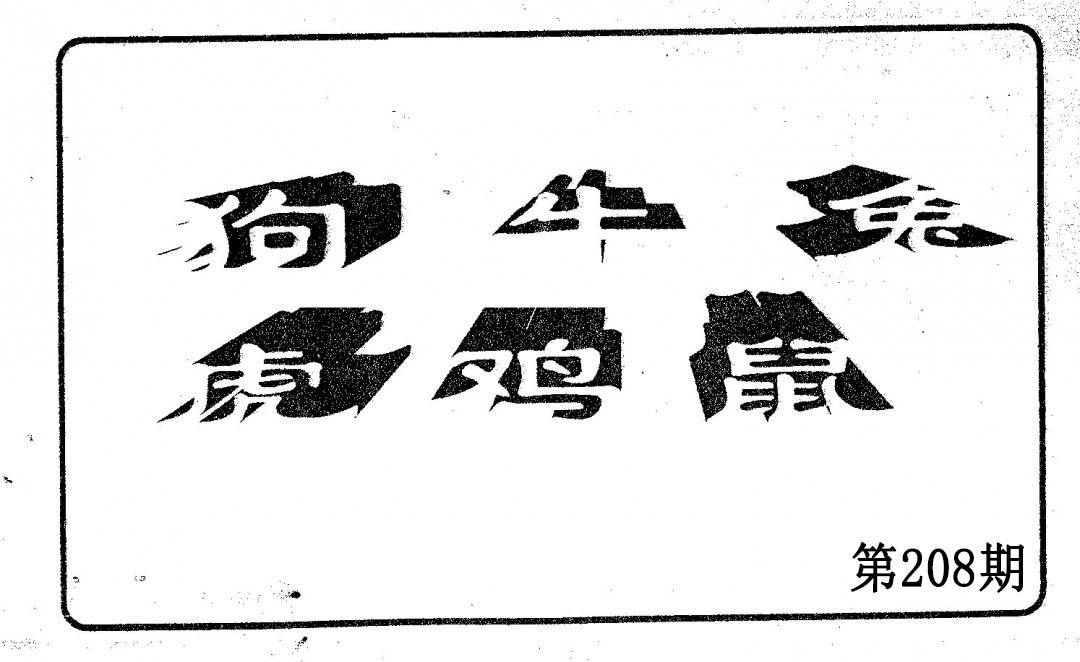 狗 牛 兔
虎 鸡 鼠
第208期